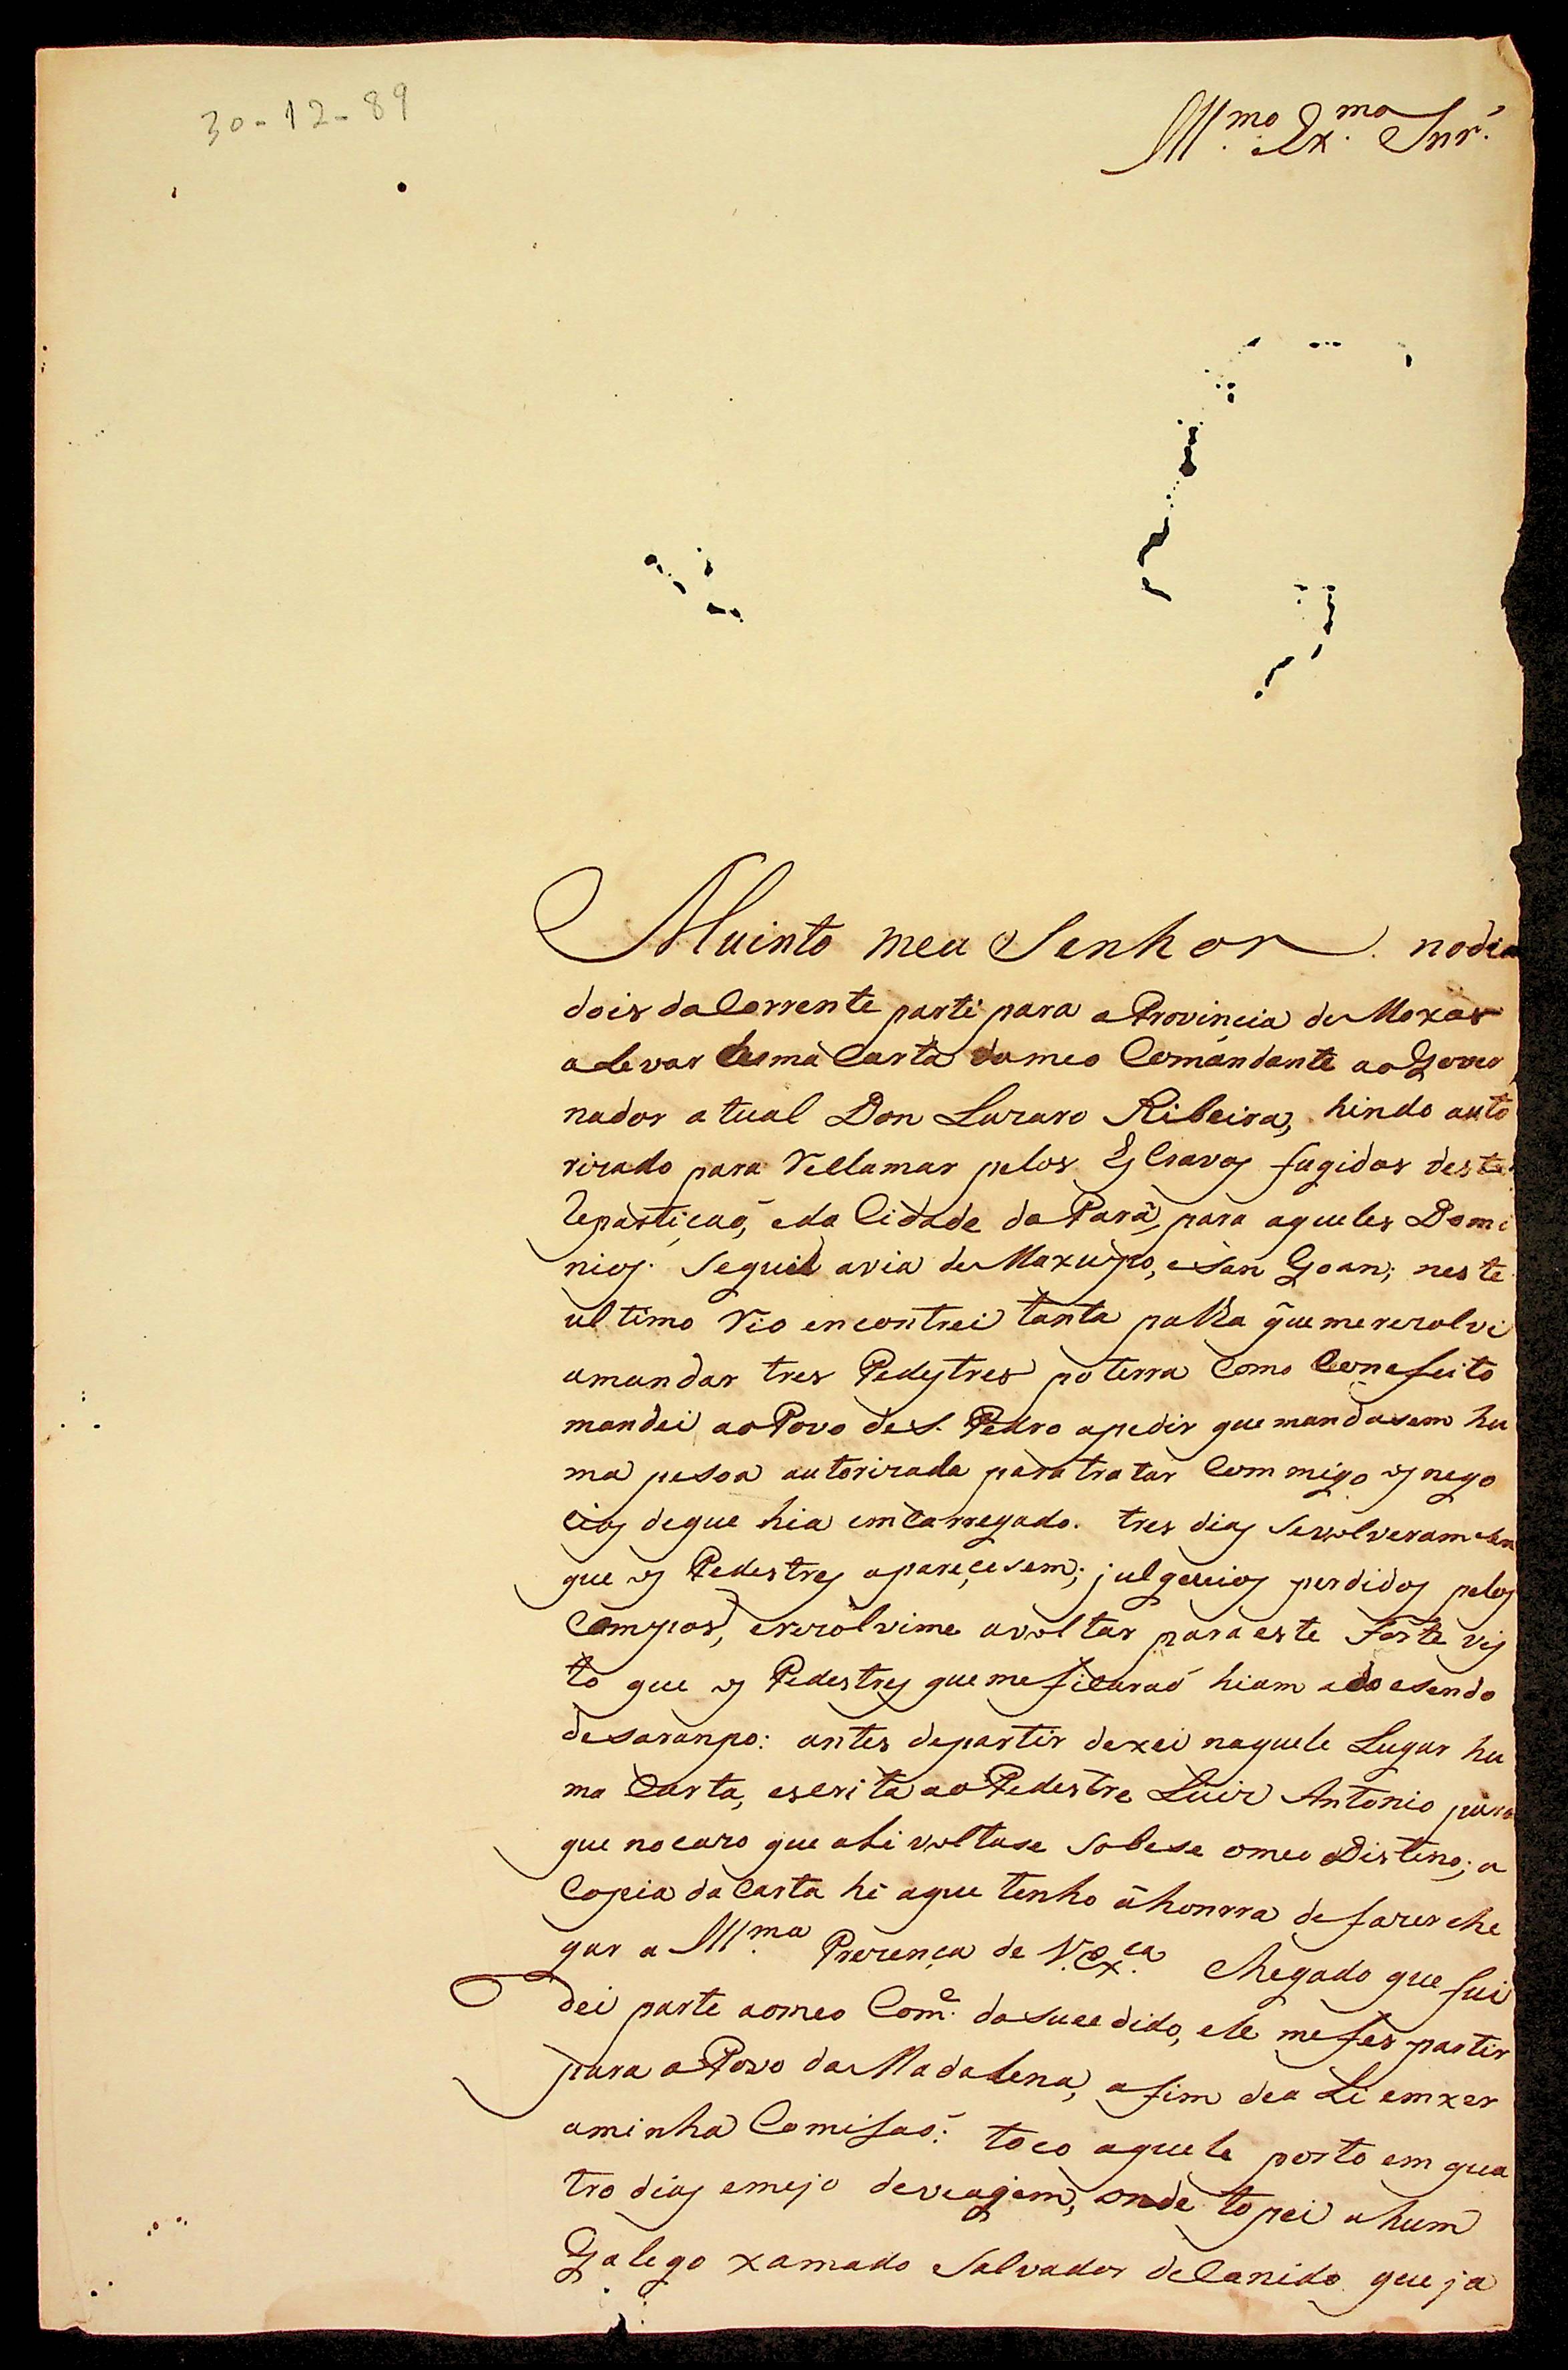 30-12-89
Ill.mo Ex.mo Snr.
Muinto meu Senhor. nodia
dois do Corrente parti para a Provincia de Moxos
a Levar huma Carta do meo Comandante ao Gover
nador atual Don Lazaro Ribeira, hindo auto
rizado para Reclamar pelos Escravos fugidos desta
Repartiçaõ, e da Cidade do Pará, para aqueles Domi
nios. Segui avia de Maxupo, e San Goan; neste
ultimo Rio encontrei tanta palha q̃ue me rezolvi
amandar tres Pedestres po terra Como Comefeito
mandei ao Povo de S. Pedro apedir que mandasem hu
ma pesoa autorizada para tratar Com migo os nego
cios de que hia emCarregado. tres dias se volveram sem
que os Pedestres apareçesem; julgueios perdidos pelos
Campos, erezolvime avoltar para este Forte vis
to que os Pedestres que me ficaraõ hiam adoesendo
de saranpo: antes departir dexei naquele Lugar hu
ma Carta, escrita ao Pedestre Luiz Antonio para
que nocazo que ahi voltase Sobese omeo Distino; a
Copia da Carta hé aque tenho áhonrra de fazer che
gar a Ill.ma Prezença de V. Ex.ca Chegado que fui
dei parte aomeo Com.e do sucedido, ele mefes partir
para o Povo da Madalena, afim de a Li emxer
aminha Comisaõ: toco aquele porto em qua
tro dias emejo deveagem, onde topei ahum
Galego xamado Salvador deCanido que ja